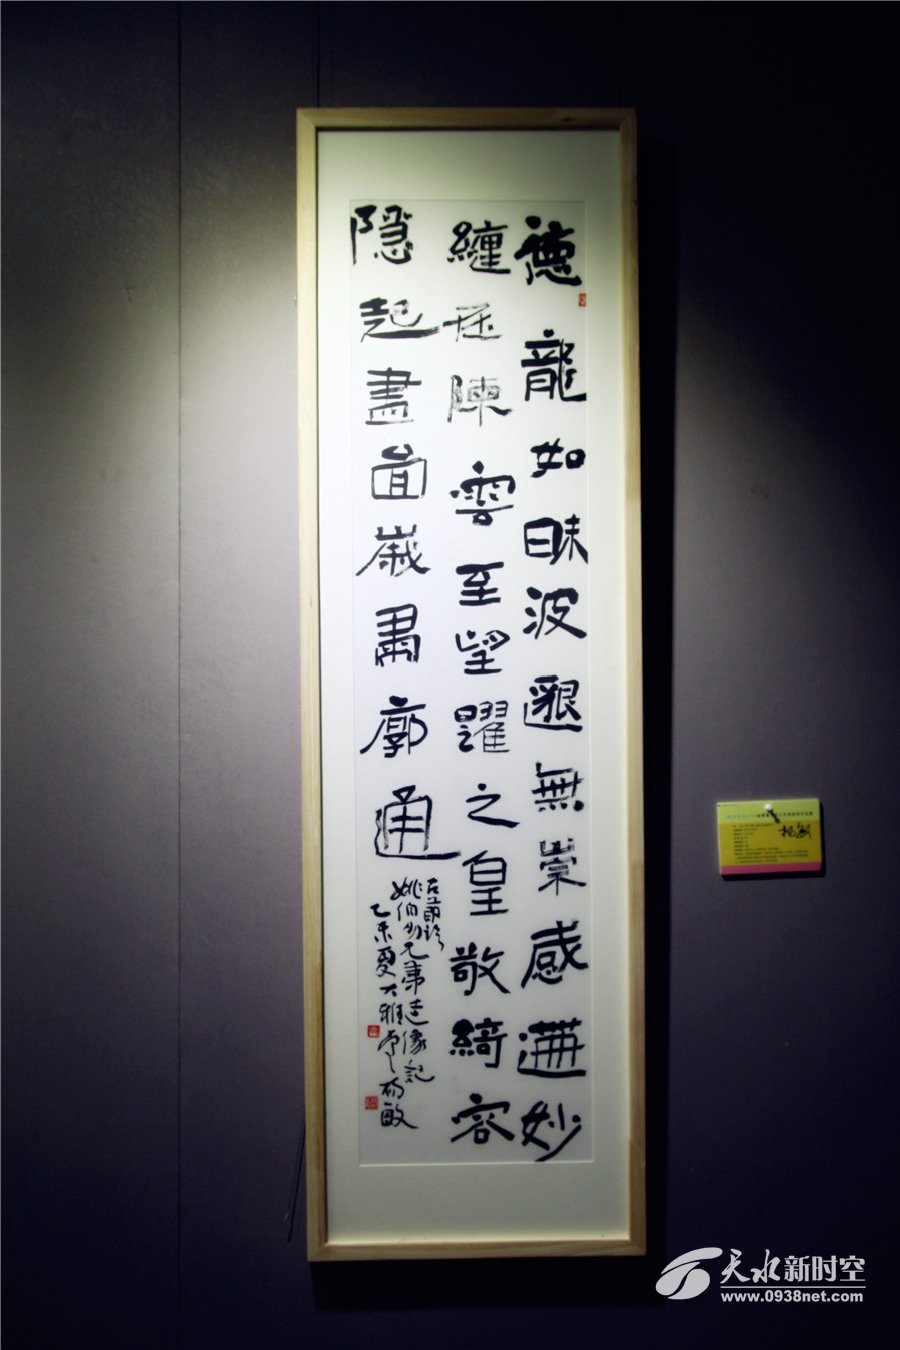 德龍如昧波邈無崇感遘妙
纏居陳雲至望躍之皇敬綺容
隱起盡圖嵗肅廓通
右節臨
姚伯多兄弟造像記
乙未夏大雅堂楊敏
天水新时空
www.0938net.com